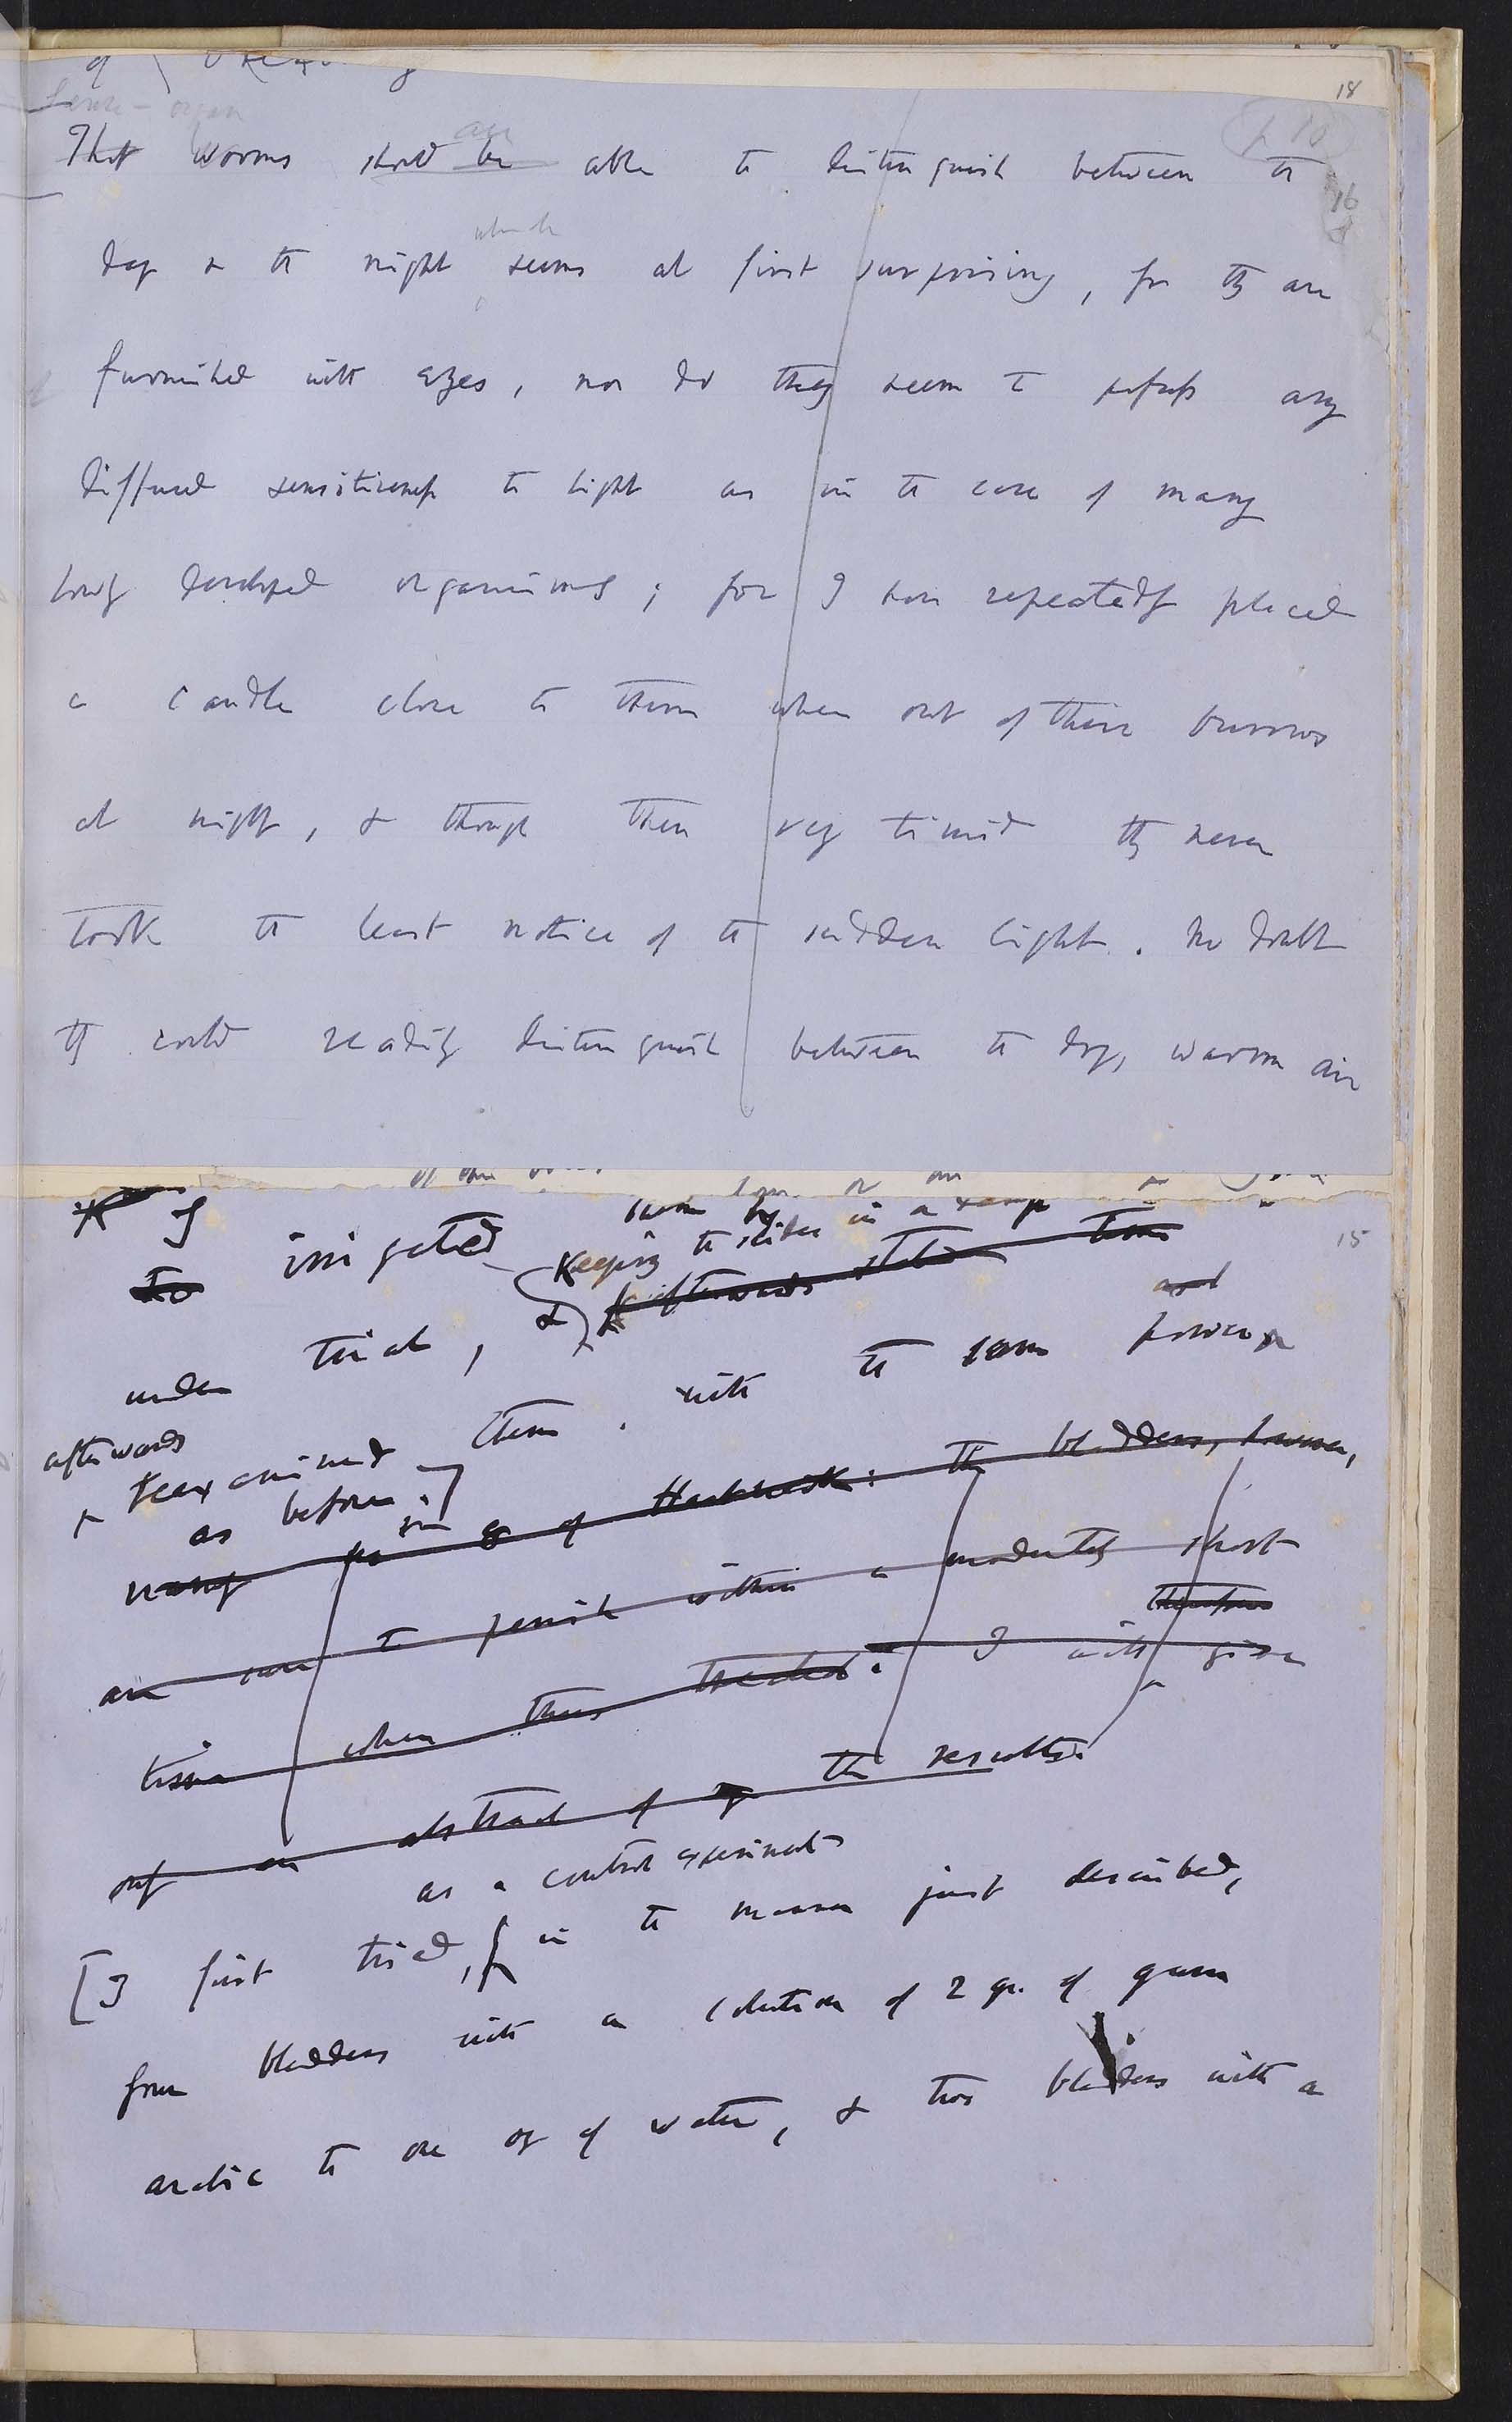 18
Sense-organ
are
That worms should be able to distinguish between the
16
which
day & the night seems at first surprising, for they are
furnished with eyes, nor do they seem to possess any
diffused sensitiveness to light as in the case of many
lowly developed organisms; for I have repeatedly placed
a candle close to them when out of their burrows
at night, & though then very timid they never
took the least notice of the sudden light. No doubt
they could readily distinguish between the dry, warm air
15
keeping the slides in a
irrigated & afterwards
and
under trial, them with the same power
afterwards
reexamined
as before.]
of the bladders, however,
are sure to perish within a moderately short
therefore
time when thus treated. I will given
only an abstract of the results.
as a control experiment
[I first tried, in the manner just described,
four bladders with a solution of 2 gr. of gum
arabic to one oz of water, & two bladders with a